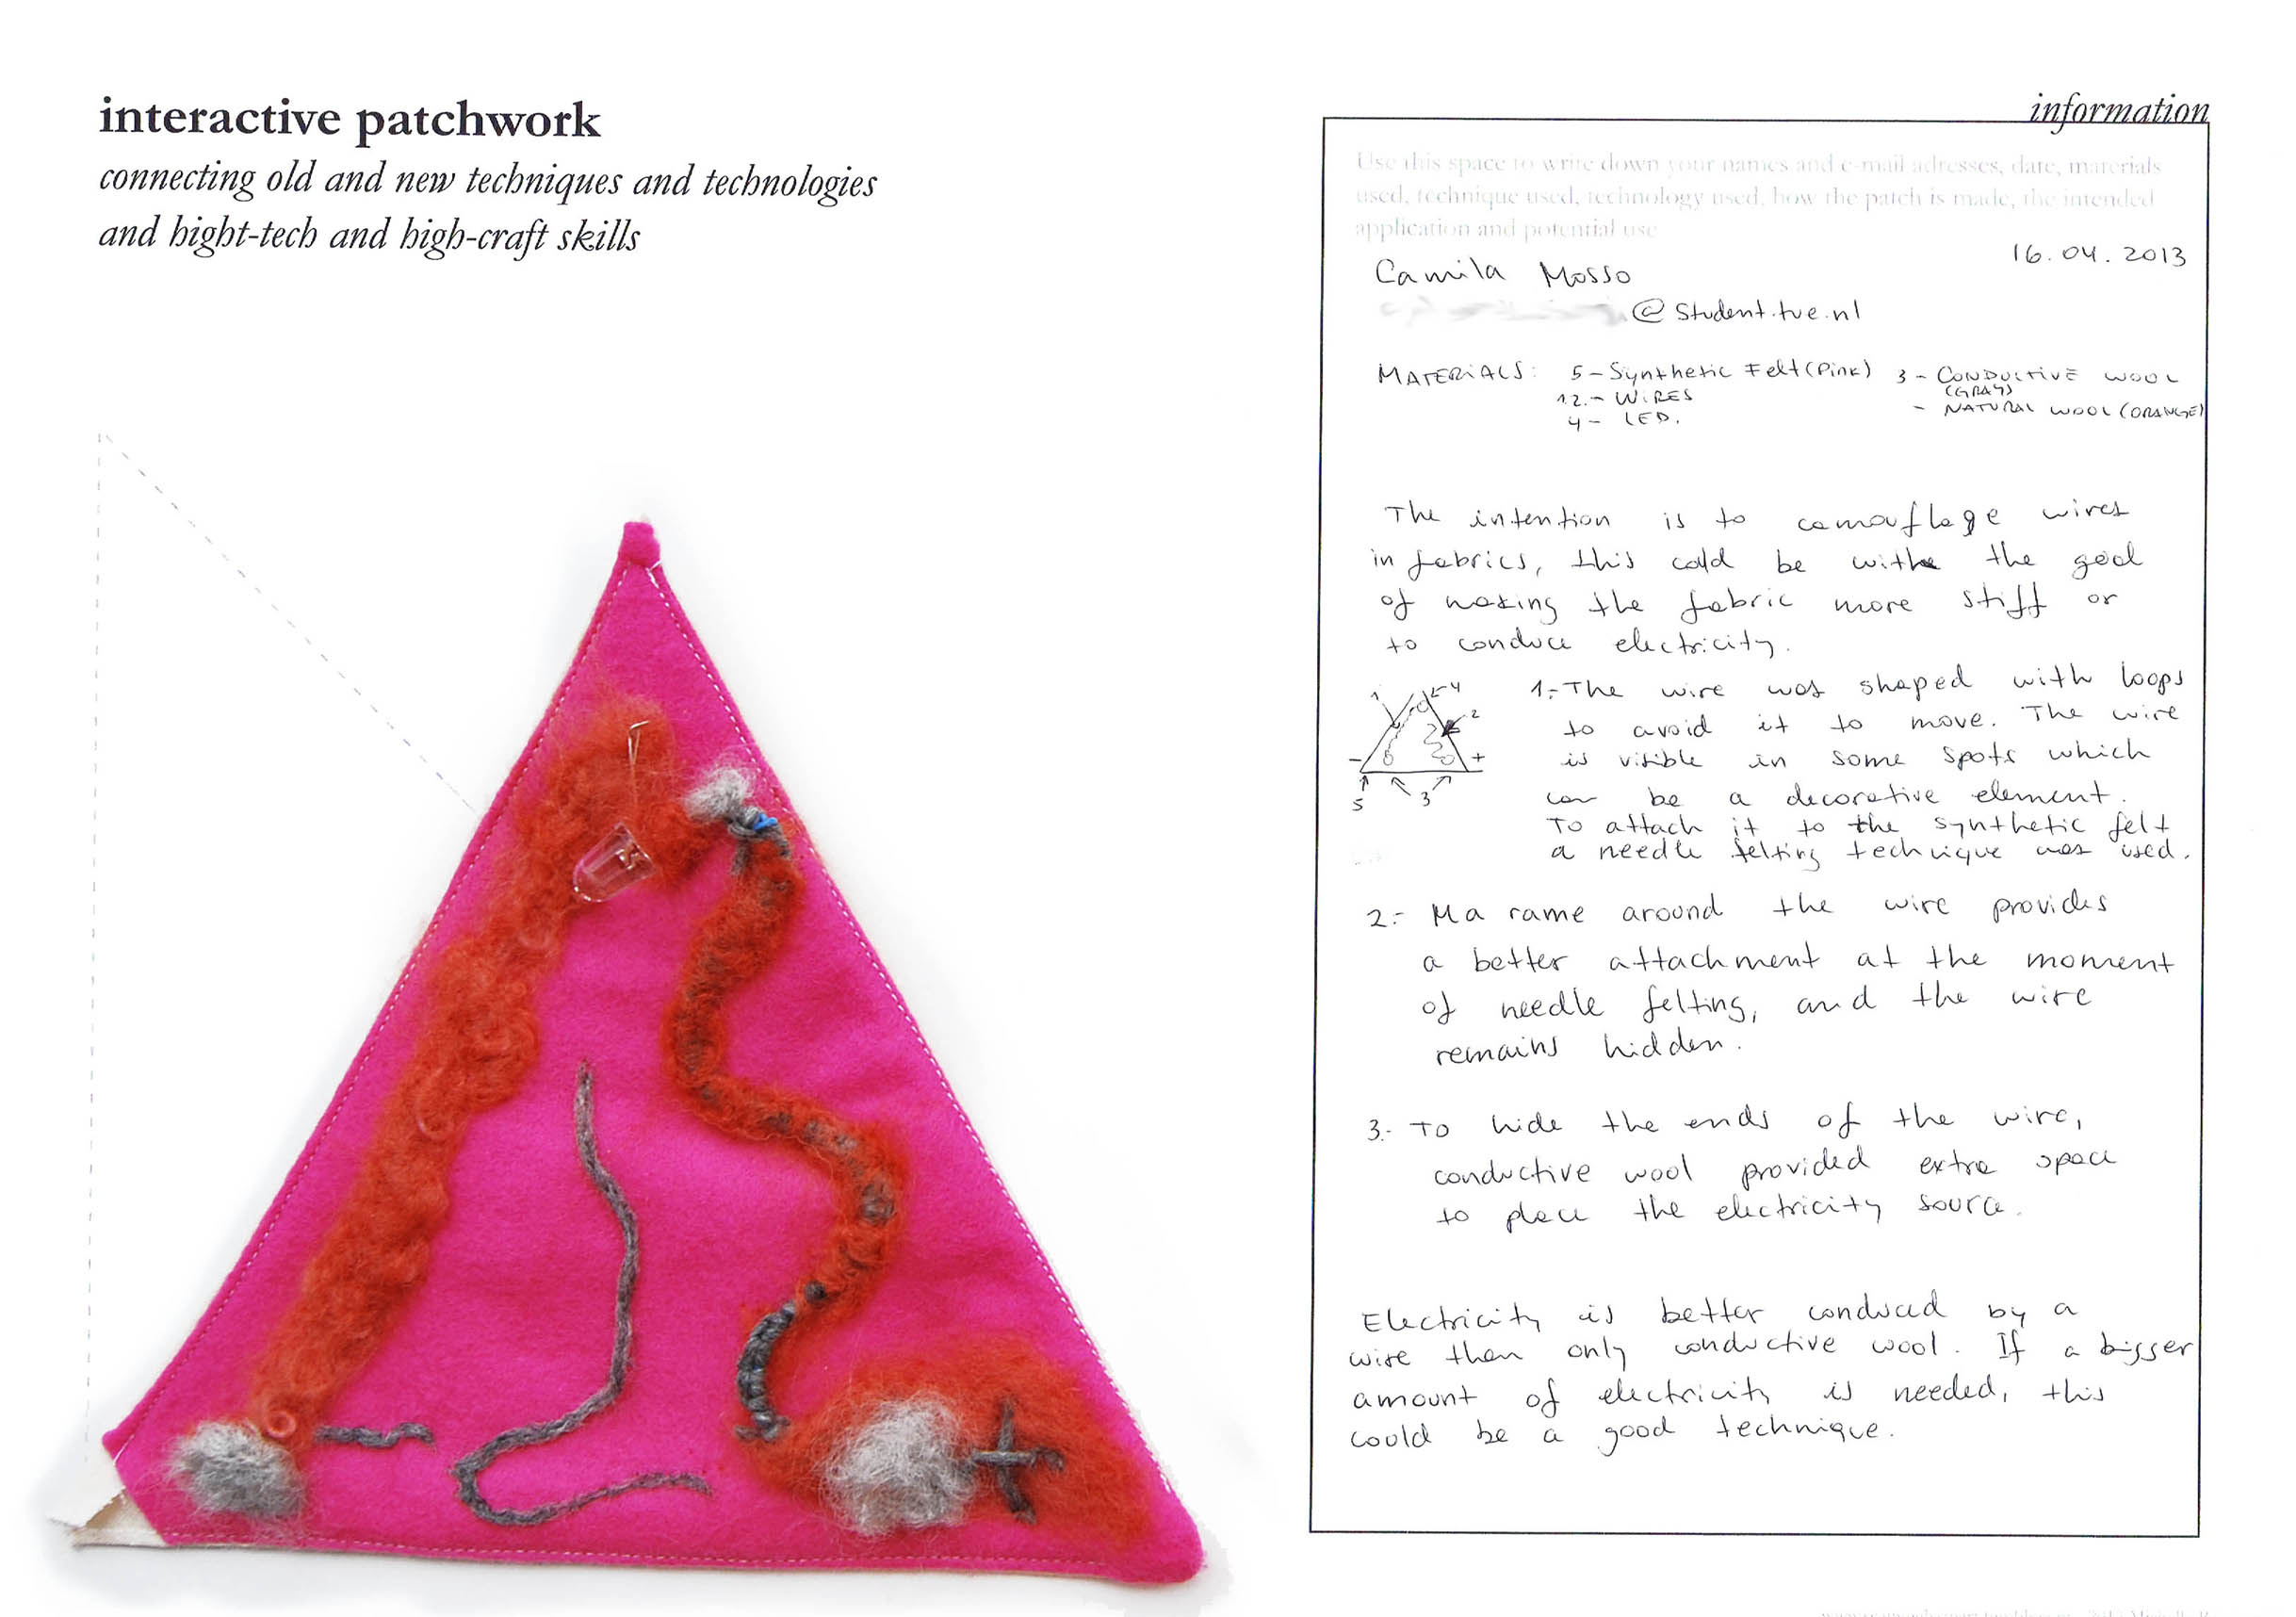 interactive patchwork
connecting old and new techniques and technologies
and hight-tech and high-craft skills
information
Use this space to write down your names and e-mail adresses, date, materials
used, technique used, technology used, how the patch is made, the intended
application and potential use
16.04.2013
Camila Mosso
@student.tue.nl
MATERIALS: 5 - Synthetic Felt (Pink) 3 - CONDUCTIVE WOOL
(GRAY)
1.2. - WIRES
- NATURAL WOOL (ORANGE)
4 - LED.
The intention is to camouflage wires
in fabrics, this could be with the goal
of making the fabric more stiff or
to conduce electricity.
1 4
2
- +
5 3
1.- The wire was shaped with loops
to avoid it to move. The wire
is visible in some spots which
can be a decorative element.
To attach it to the synthetic felt
a needle felting technique was used.
2.- Ma rame around the wire provides
a better attachment at the moment
of needle felting, and the wire
remains hidden.
3.- To hide the ends of the wire,
conductive wool provided extra space
to place the electricity source.
Electricity is better conduced by a
wire then only conductive wool. If a bigger
amount of electricity is needed, this
could be a good technique.